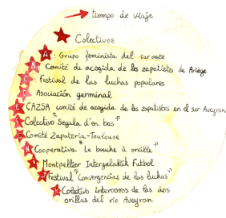 tiempo de viaje
Colectivos
Grupo feminista del sur oeste
Comité de acogida de lxs zapatistas de Ariège
Festival de las luchas populares
Asociación germinal
CAZSA comité de acogida de lxs zapatistas en el sur Aveyron
Colectivo "Segala d'en bas"
Comité Zapateria-Toulouse
Cooperativa "Le bouche à oreille"
Montpellier Intergalaktik Futbol
Festival "Convergencias de las luchas"
Colectivo intercosros de las dos
orillas del río Aveyron